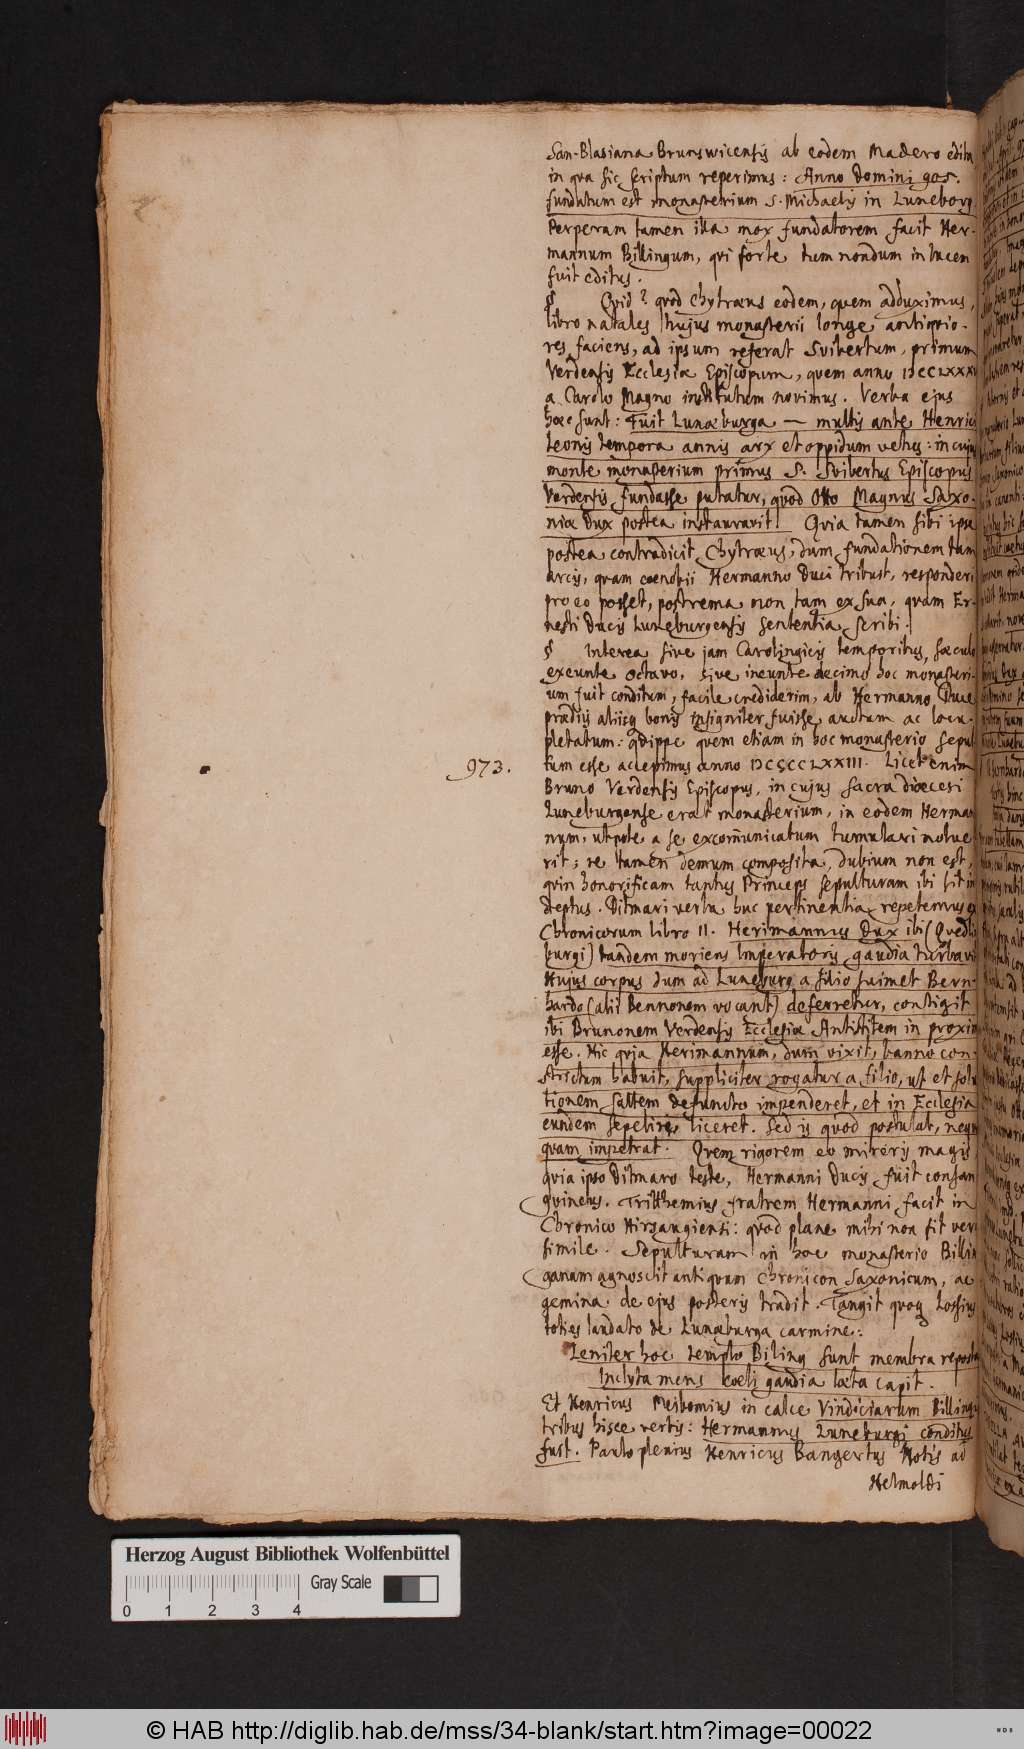 San-Blasiana Brunswicensis ab eodem Madero edita
in qva sic scriptum reperimus: Anno Domini 905.
fundatum est monasterium S. Michaelis in Luneborg.
Perperam tamen illa mox fundatorem facit Her-
mannum Billingum, qvi forte tum nondum in lucem
fuit editus.
§ Qvid? qvod Chytræus eodem, quem adduximus,
libro natales hujus monasterii longe antiqvio-
res faciens, ad ipsum referat Svibertum, primum
Verdensis Ecclesiæ Episcopum, quem anno
a Carolo Magno institutum novimus. Verba ejus
hæc sunt: Fuit Lunæburga — multis ante Henrici
Leonis tempora annis arx et oppidum vetus: in cujus
monte monasterium primus S. Svibertus Episcopus
Verdensis fundasse putatur, quod Otto Magnus Saxo-
niæ Dux postea instauravit. Qvia tamen sibi ipse
postea contradicit Chytræus, dum fundationem tam
arcis, quam cœnobii Hermanno Duci tribuit, responderi
pro eo posset, postrema non tam ex sua, quam Er-
nesti Ducis Luneburgensis sententia scribi.
§ Interea sive jam Carolingicis temporibus, sæculo
exeunte octavo, sive ineunte decimo hoc monasteri-
um fuit conditum, facile crediderim, ab Hermanno Duce
prædiis aliisq bonis insigniter fuisse auctum ac locu-
pletatum: qvippe quem etiam in hoc monasterio sepul
973.
tum esse accepimus anno Licet enim
Bruno Verdensis Episcopus, in cujus sacra diœcesi
Luneburgense erat monasterium, in eodem Herman
num, utpote a se excom̄unicatum tumulari nolue
rit; re tamen demum composita, dubium non est,
qvin honorificam tantus Princeps sepulturam ibi sit in
deptus. Ditmari verba huc pertinentia repetemus ex
Chronicorum libro II. Herimannus Dux ibi (Qvedli
burgi) tandem moriens Imperatoris gaudia turbavit
Hujus corpus dum ad Luneburg a filio suimet Bern-
hardo (alii Bennonem vocant) deferretur, contigit
ibi Brunonem Verdensis Ecclesiæ Antistitem in proxim
esse. Hic qvia Herimannum, dum vixit, banno con-
strictum habuit, suppliciter rogatur a filio, ut et solu
tionem saltem defuncto impenderet, et in Ecclesia
eundem sepeliri liceret. Sed is quod postulat, neqv
quam impetrat. Qvem rigorem eo mireris magis
qvia ipso Ditmaro teste, Hermanni Ducis fuit consan
gvineus. Trithemius fratrem Hermanni facit in
Chronico Hirsaugiensi: quod plane mihi non fit veri
simile. Sepulturam in hoc monasterio Billin
ganam agnoscit antiquum Chronicon Saxonicum, ac
gemina de ejus posteris tradit. Tangit quoq Lossius
toties laudato de Lunæburga carmine:
Leniter hoc templo Biling sunt membra reposta
Inclyta mens cœli gaudia læta capit.
Et Henricus Meibomius in calce Vindiciarum Billing
tribus hisce verbis: Hermannus Luneburgi conditus
fuit. Paulo plenius Henricus Bangertus Notis ad
Helmoldi
Herzog August Bibliothek Wolfenbüttel
Gray Scale
0 1 2 3 4
© HAB http://diglib.hab.de/mss/34-blank/start.htm?image=00022